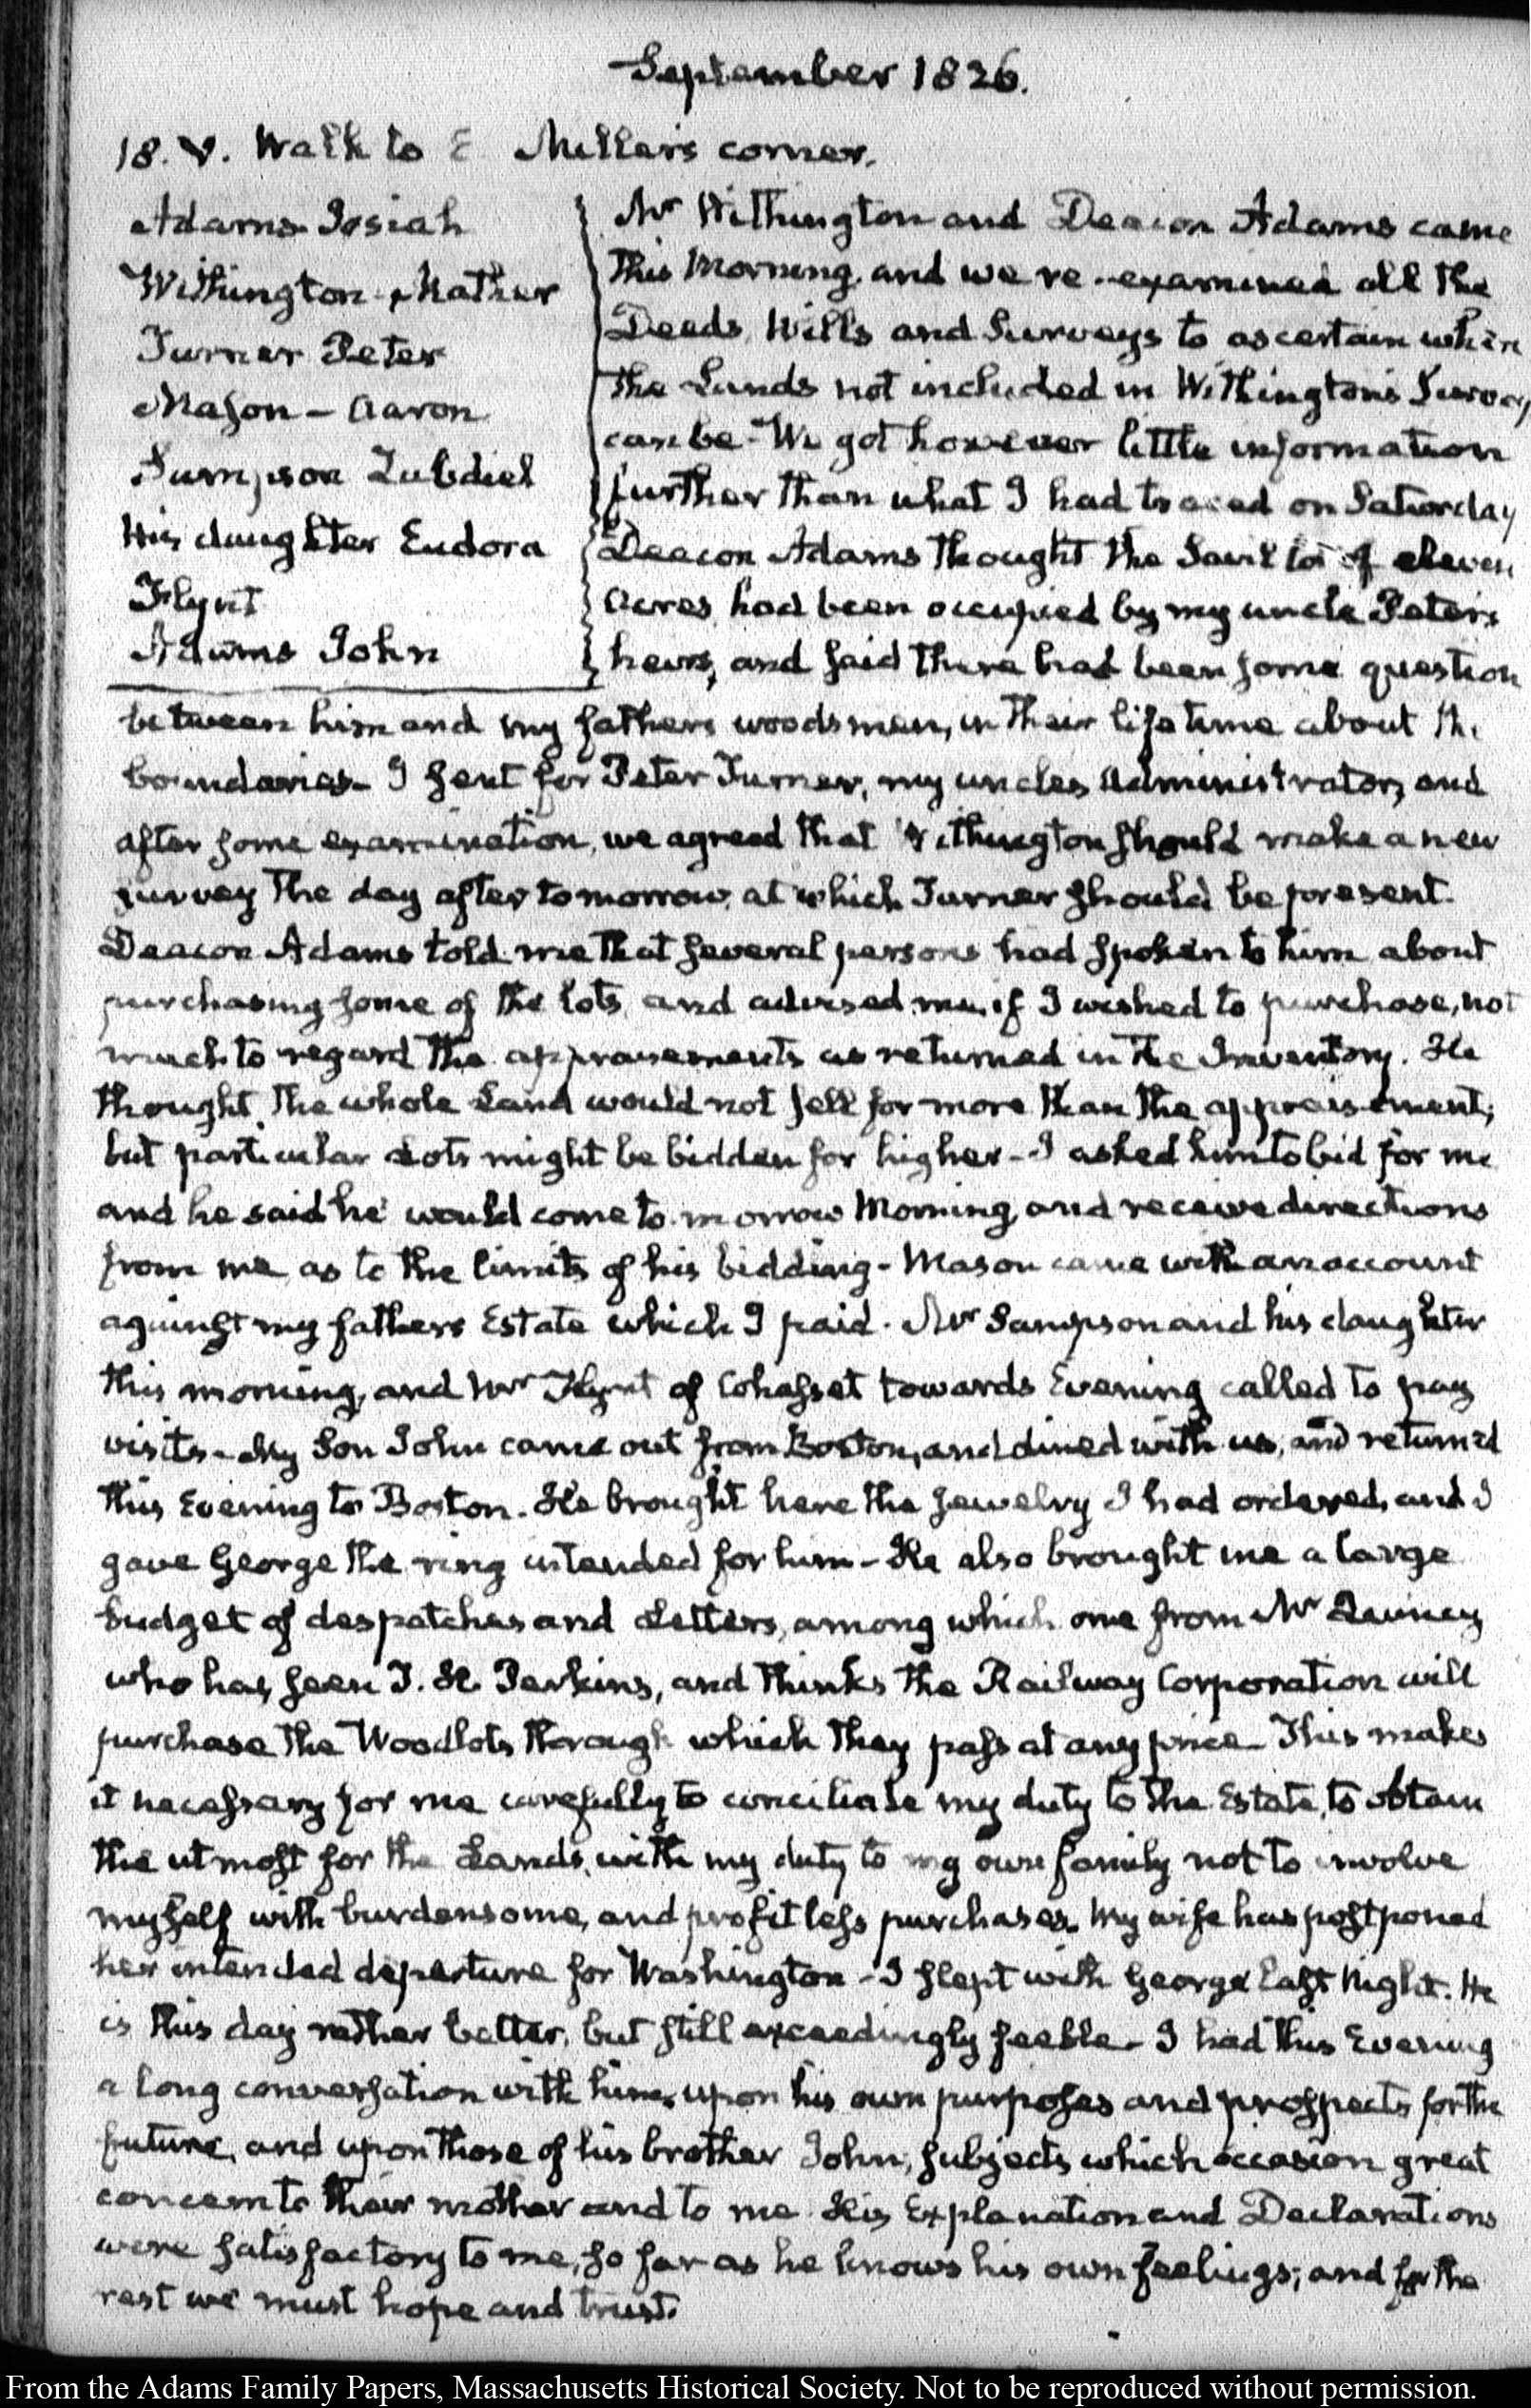 September 1826.
18. V. Walk to E Miller's corner.
Adams Josiah
Withington Mather
Turner Peter
Mason - Aaron
Sampson Zabdiel
His daughter Eudora
Flynt
Adams John
Mr Withington and Deacon Adams came
this Morning, and we re-examined all the
Deeds, Wills and Surveys to ascertain where
the Lands not included in Withington's Survey
can be - We got however little information
further than what I had traced on Saturday
Deacon Adams thought the Savil lot of eleven
Acres, had been occupied by my uncle Peter's
heirs, and said there had been some question
between him and my fathers woodsmen, in their life time about the
boundaries - I sent for Peter Turner, my uncles Administrator, and
after some examination, we agreed that Withington should make a new
survey the day after tomorrow, at which Turner should be present.
Deacon Adams told me that several persons had spoken to him about
purchasing some of the lots, and advised me, if I wished to purchase, not
much to regard the appraisements as returned in the Inventory. He
thought the whole Land would not sell for more than the appraisement;
but particular Lots might be bidden for higher - I asked him to bid for me
and he said he would come to morrow Morning, and receive directions
from me, as to the limits of his bidding - Mason came with an account
against my fathers Estate which I paid. Mr Sampson and his daughter
this morning, and Mr Flynt of Cohasset towards Evening called to pay
visits - My Son John came out from Boston, and dined with us, and returned
this Evening to Boston. He brought here the jewelry I had ordered, and I
gave George the ring intended for him - He also brought me a large
budget of despatches and Letters, among which one from Mr Quincy
who has seen T. H. Perkins, and thinks the Railway Corporation will
purchase the Woodlots through which they pass at any price - This makes
it necessary for me carefully to conciliate my duty to the Estate, to obtain
the utmost for the Lands, with my duty to my own family not to involve
myself with burdensome, and profitless purchases. My wife has postponed
her intended departure for Washington - I slept with George last Night. He
is this day rather better, but still exceedingly feeble - I had this Evening
a long conversation with him, upon his own purposes and prospects for the
future, and upon those of his brother John; subjects which occasion great
concern to their mother and to me. His Explanation and Declarations
were satisfactory to me, so far as he knows his own feelings; and for the
rest we must hope and trust.
From the Adams Family Papers, Massachusetts Historical Society. Not to be reproduced without permission.